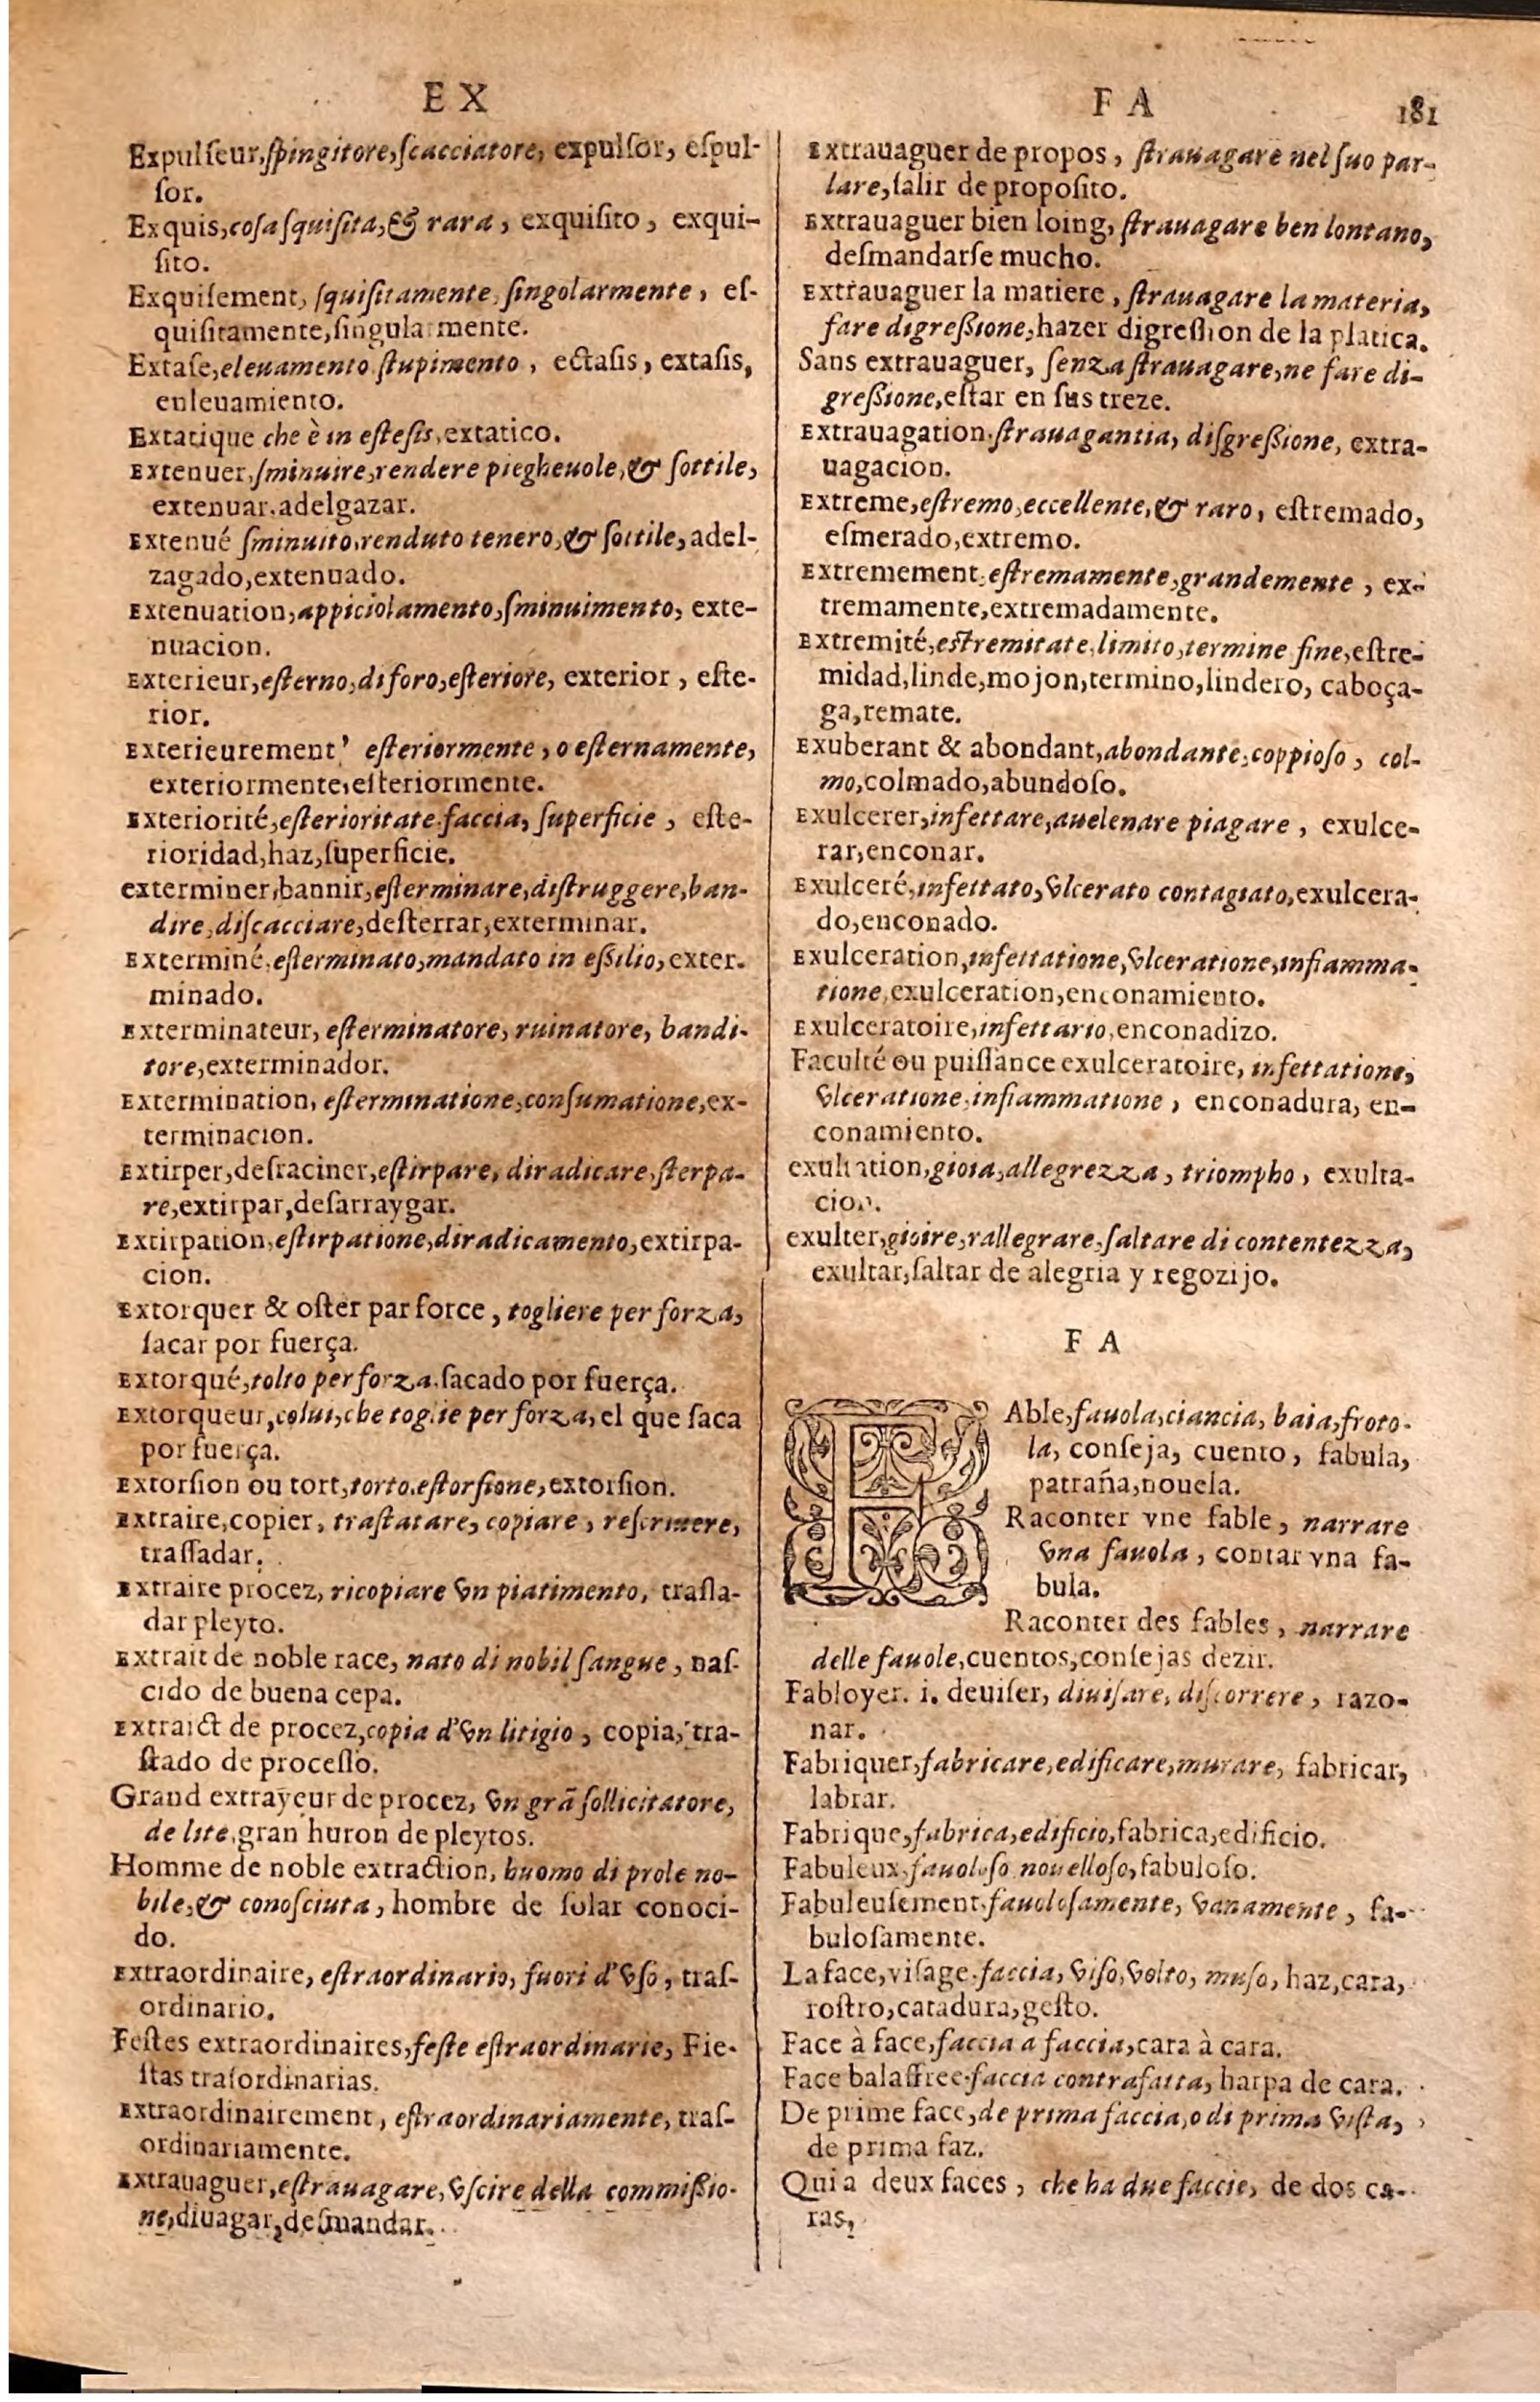 EX
Expulſeur, ſpingitore, ſcacciatore, expulſor, eſpul-
ſor.
Exquis, coſa ſquiſita, & rara, exquiſito, exqui-
ſito.
Exquiſement, ſquiſitamente, ſingolarmente, eſ-
quiſitamente, ſingularmente.
Extaſe, eleuamento ſtupimento, ectaſis, extaſis,
enleuamiento.
Extatique che è in eſteſis, extatico.
Extenuer, ſminuire, rendere piegheuole, & ſottile,
extenuar, adelgazar.
Extenué ſminuito, renduto tenero, & ſottile, adel-
zagado, extenuado.
Extenuation, appiciolamento, ſminuimento, exte-
nuacion.
Exterieur, eſterno, di foro, eſteriore, exterior, eſte-
rior.
Exterieurement, eſteriormente, o eſternamente,
exteriormente, eſteriormente.
Exteriorité, eſterioritate faccia, ſuperficie, eſte-
rioridad, haz, ſuperficie.
exterminer, bannir, eſterminare, diſtruggere, ban-
dire, diſcacciare, deſterrar, exterminar.
Exterminé, eſterminato, mandato in eſſilio, exter-
minado.
Exterminateur, eſterminatore, ruinatore, bandi-
tore, exterminador.
Extermination, eſterminatione, conſumatione, ex-
terminacion.
Extirper, deſraciner, eſtirpare, diradicare, ſterpa-
re, extirpar, deſarraygar.
Extirpation, eſtirpatione, diradicamento, extirpa-
cion.
Extorquer & oſter par force, togliere per forza,
ſacar por fuerça.
Extorqué, tolto per forza, ſacado por fuerça.
Extorqueur, colui, che toglie per forza, el que ſaca
por fuerça.
Extorſion ou tort, torto, eſtorſione, extorſion.
Extraire, copier, traſtatare, copiare, reſcriuere,
traſſadar.
Extraire procez, ricopiare vn piatimento, traſla-
dar pleyto.
Extrait de noble race, nato di nobil ſangue, naſ-
cido de buena cepa.
Extraict de procez, copia d'vn litigio, copia, tra-
ſtado de proceſſo.
Grand extrayeur de procez, vn grã ſollicitatore,
de lite, gran huron de pleytos.
Homme de noble extraction, huomo di prole no-
bile, & conoſciuta, hombre de ſolar conoci-
do.
Extraordinaire, eſtraordinario, fuori d'vſo, traſ-
ordinario.
Feſtes extraordinaires, feſte eſtraordinarie, Fie-
ſtas traſordinarias.
Extraordinairement, eſtraordinariamente, traſ-
ordinariamente.
Extrauaguer, eſtrauagare, vſcire della commiſſio-
ne, diuagar, deſmandar.
FA 181
Extrauaguer de propos, ſtrauagare nel ſuo par-
lare, ſalir de propoſito.
Extrauaguer bien loing, ſtrauagare ben lontano,
deſmandarſe mucho.
Extrauaguer la matiere, ſtrauagare la materia,
fare digreſſione, hazer digreſſion de la platica.
Sans extrauaguer, ſenza ſtrauagare, ne fare di-
greſſione, eſtar en ſus treze.
Extrauagation, ſtrauagantia, diſgreſſione, extra-
uagacion.
Extreme, eſtremo, eccellente, & raro, eſtremado,
eſmerado, extremo.
Extremement, eſtremamente, grandemente, ex-
tremamente, extremadamente.
Extremité, eſtremitate, limito, termine fine, eſtre-
midad, linde, mojon, termino, lindero, caboça-
ga, remate.
Exuberant & abondant, abondante, coppioſo, col-
mo, colmado, abundoſo.
Exulcerer, infettare, auelenare piagare, exulce-
rar, enconar.
Exulceré, infettato, vlcerato contagiato, exulcera-
do, enconado.
Exulceration, infettatione, vlceratione, infiamma-
tione, exulceration, enconamiento.
Exulceratoire, infettario, enconadizo.
Faculté ou puiſſance exulceratoire, infettatione,
vlceratione, infiammatione, enconadura, en-
conamiento.
exultation, gioia, allegrezza, triompho, exulta-
cion.
exulter, gioire, rallegrare, ſaltare di contentezza,
exultar, ſaltar de alegria y regozijo.
FA
FAble, fauola, ciancia, baia, froto-
la, conſeja, cuento, fabula,
patraña, nouela.
Raconter vne fable, narrare
vna fauola, contar vna fa-
bula.
Raconter des fables, narrare
delle fauole, cuentos, conſejas dezir.
Fabloyer. i. deuiſer, diuiſare, diſcorrere, razo-
nar.
Fabriquer, fabricare, edificare, murare, fabricar,
labrar.
Fabrique, fabrica, edificio, fabrica, edificio.
Fabuleux, fauoloſo nouelloſo, fabuloſo.
Fabuleuſement, fauoloſamente, vanamente, fa-
buloſamente.
La face, viſage, faccia, viſo, volto, muſo, haz, cara,
roſtro, catadura, geſto.
Face à face, faccia a faccia, cara à cara.
Face balaffree, faccia contrafatta, harpa de cara.
De prime face, de prima faccia, o di prima viſta,
de prima faz.
Qui a deux faces, che ha due faccie, de dos ca-
ras,